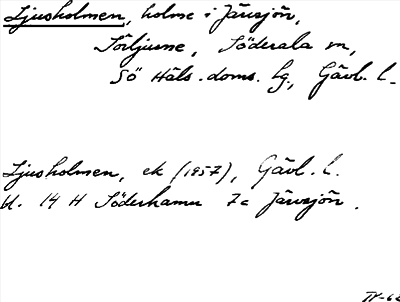 Ljusholmen, holme i Järvsjön,
Sörljusne, Söderala sn,
Sö Häls. doms. hg., Gävl. l.
Ljusholmen, ek (1957), Gävl. l.
bl. 14 H Söderhamn 7c Järvsjön.